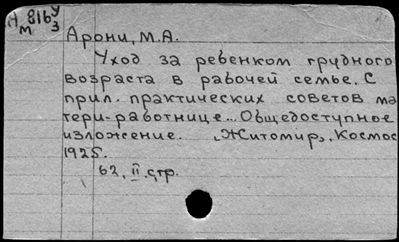 А 816 У/3
м
Арони, М.А.
Уход за ребенком грудного
возраста в рабочей семье. С
прил. практических советов ма
тери-работнице... Общедоступное
изложение. „Житомир„, Космос
1925.
62, II стр.